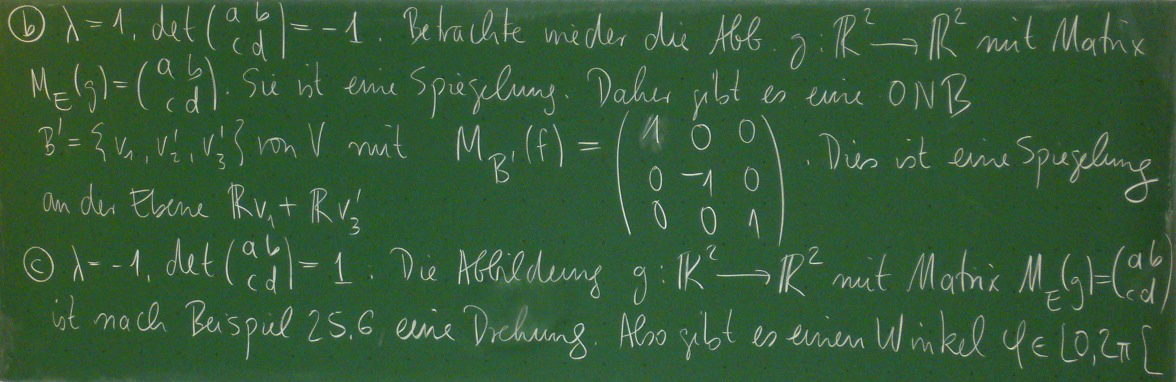 ⓑ λ = 1, det (a b c d) = -1. Betrachte wieder die Abb. g: ℝ² → ℝ² mit Matrix
M_E(g) = (a b c d). Sie ist eine Spiegelung. Daher gibt es eine ONB
B' = {v₁, v₂', v₃'} von V mit M_B'(f) = (1 0 0 0 -1 0 0 0 1). Dies ist eine Spiegelung
an der Ebene ℝv₁ + ℝv₃'
ⓒ λ = -1, det (a b c d) = 1. Die Abbildung g: ℝ² → ℝ² mit Matrix M_E(g) = (a b c d)
ist nach Beispiel 25.6 eine Drehung. Also gibt es einen Winkel φ ∈ [0, 2π[